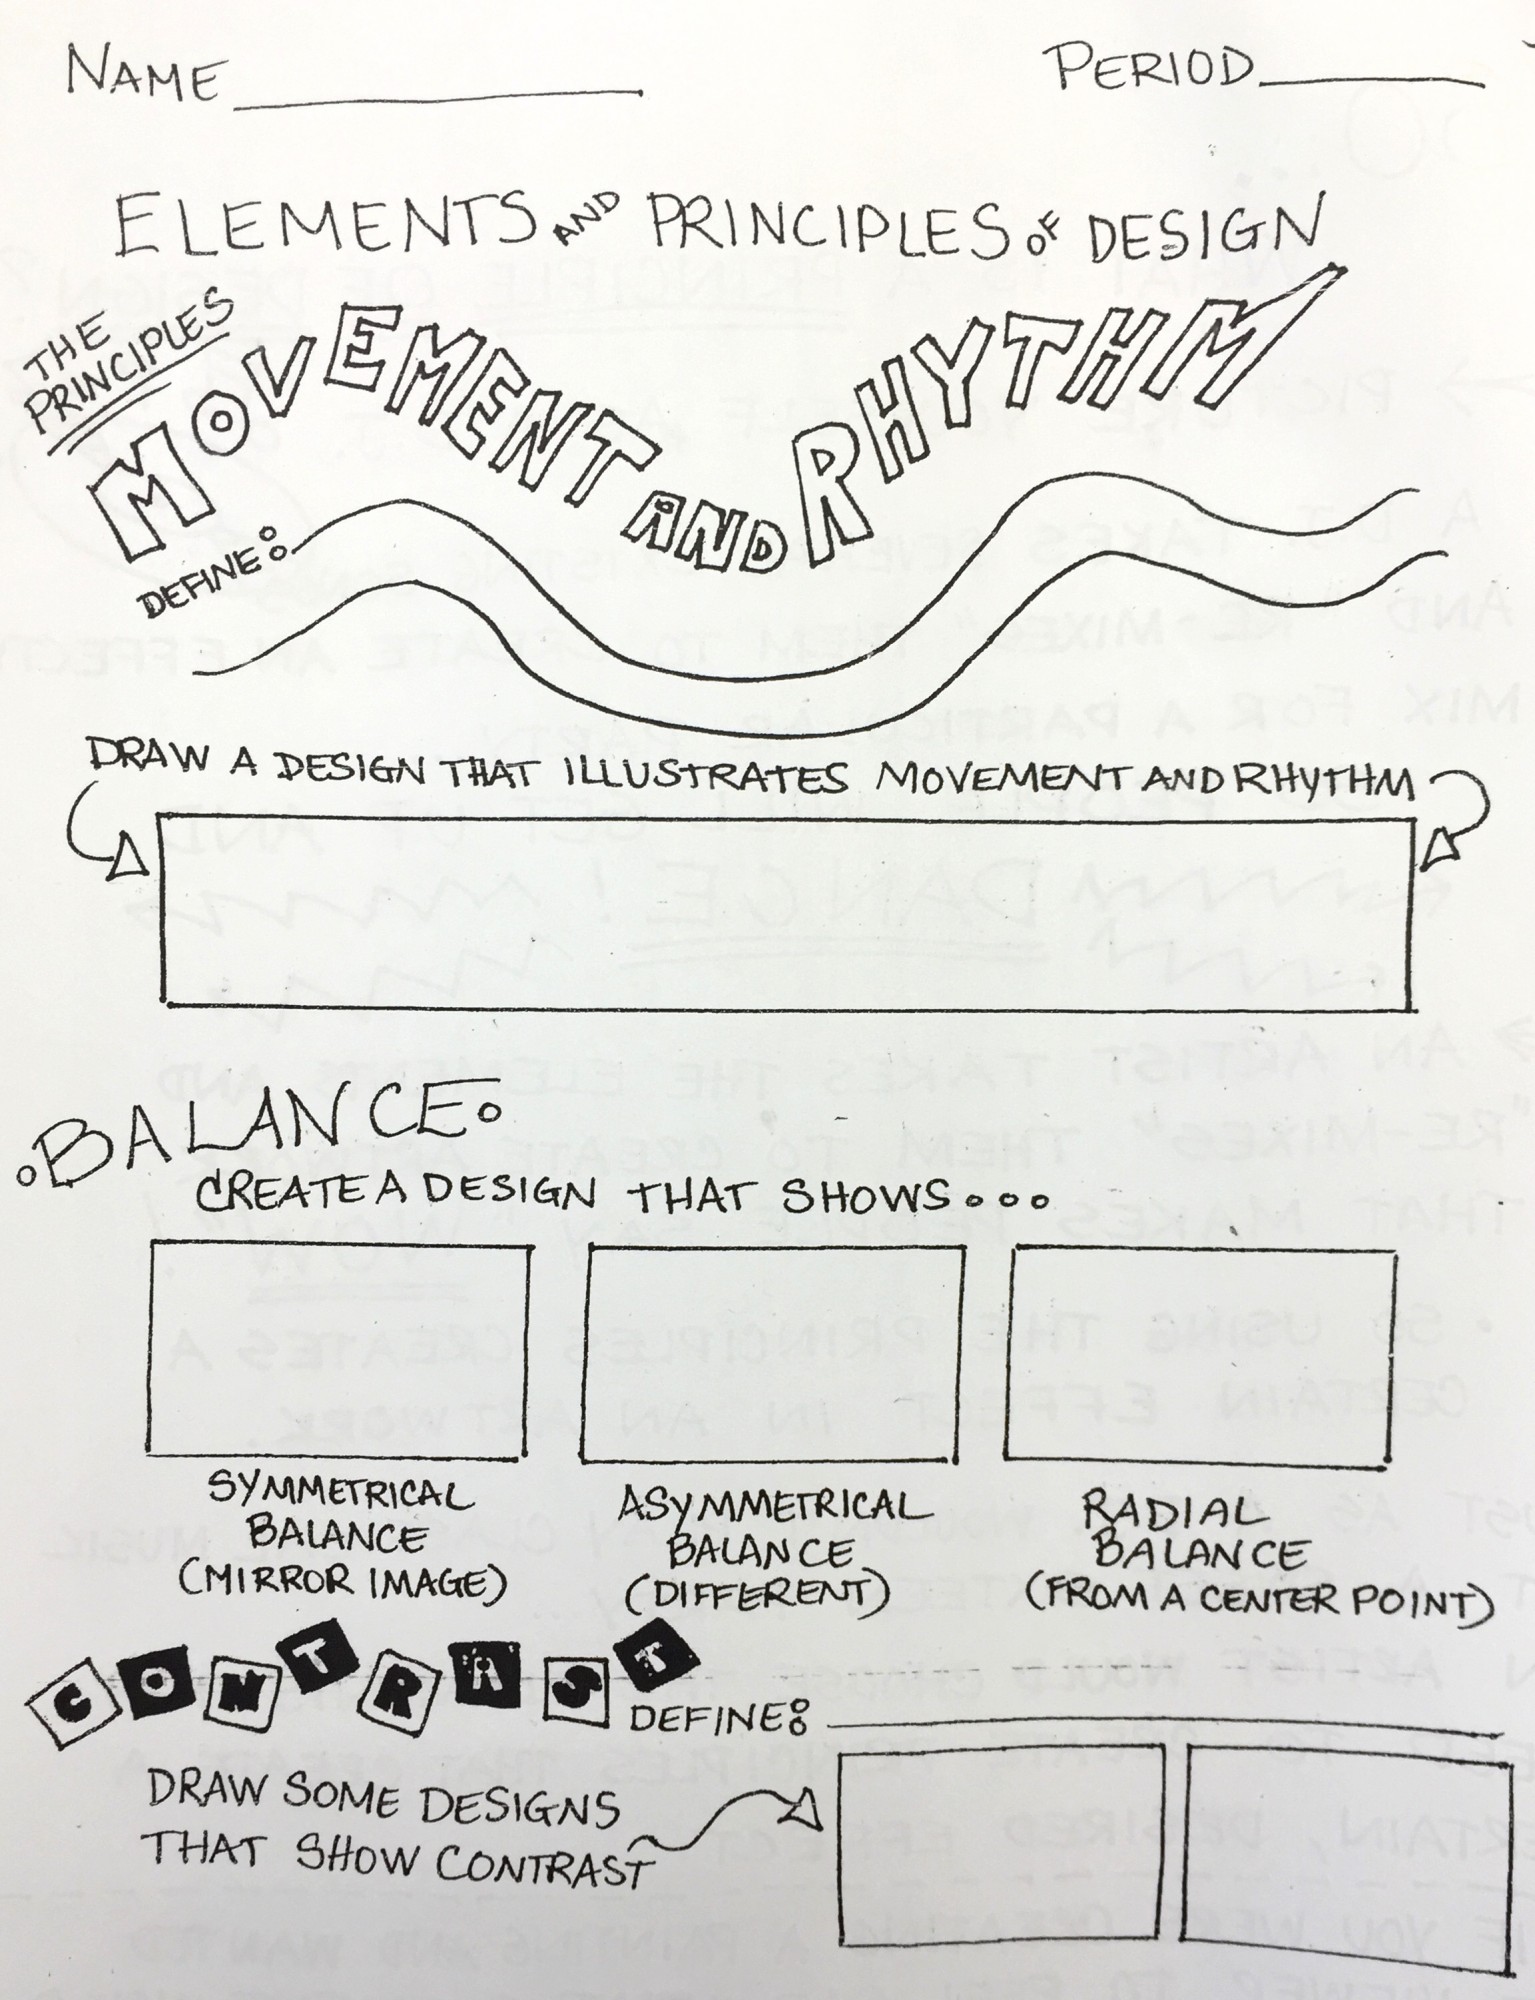 NAME
PERIOD
ELEMENTS AND PRINCIPLES OF DESIGN
THE
PRINCIPLES
MOVEMENT AND RHYTHM
DEFINE:
DRAW A DESIGN THAT ILLUSTRATES MOVEMENT AND RHYTHM
BALANCE:
CREATE A DESIGN THAT SHOWS...
SYMMETRICAL
BALANCE
(MIRROR IMAGE)
ASYMMETRICAL
BALANCE
(DIFFERENT)
RADIAL
BALANCE
(FROM A CENTER POINT)
CONTRAST
DEFINE:
DRAW SOME DESIGNS
THAT SHOW CONTRAST